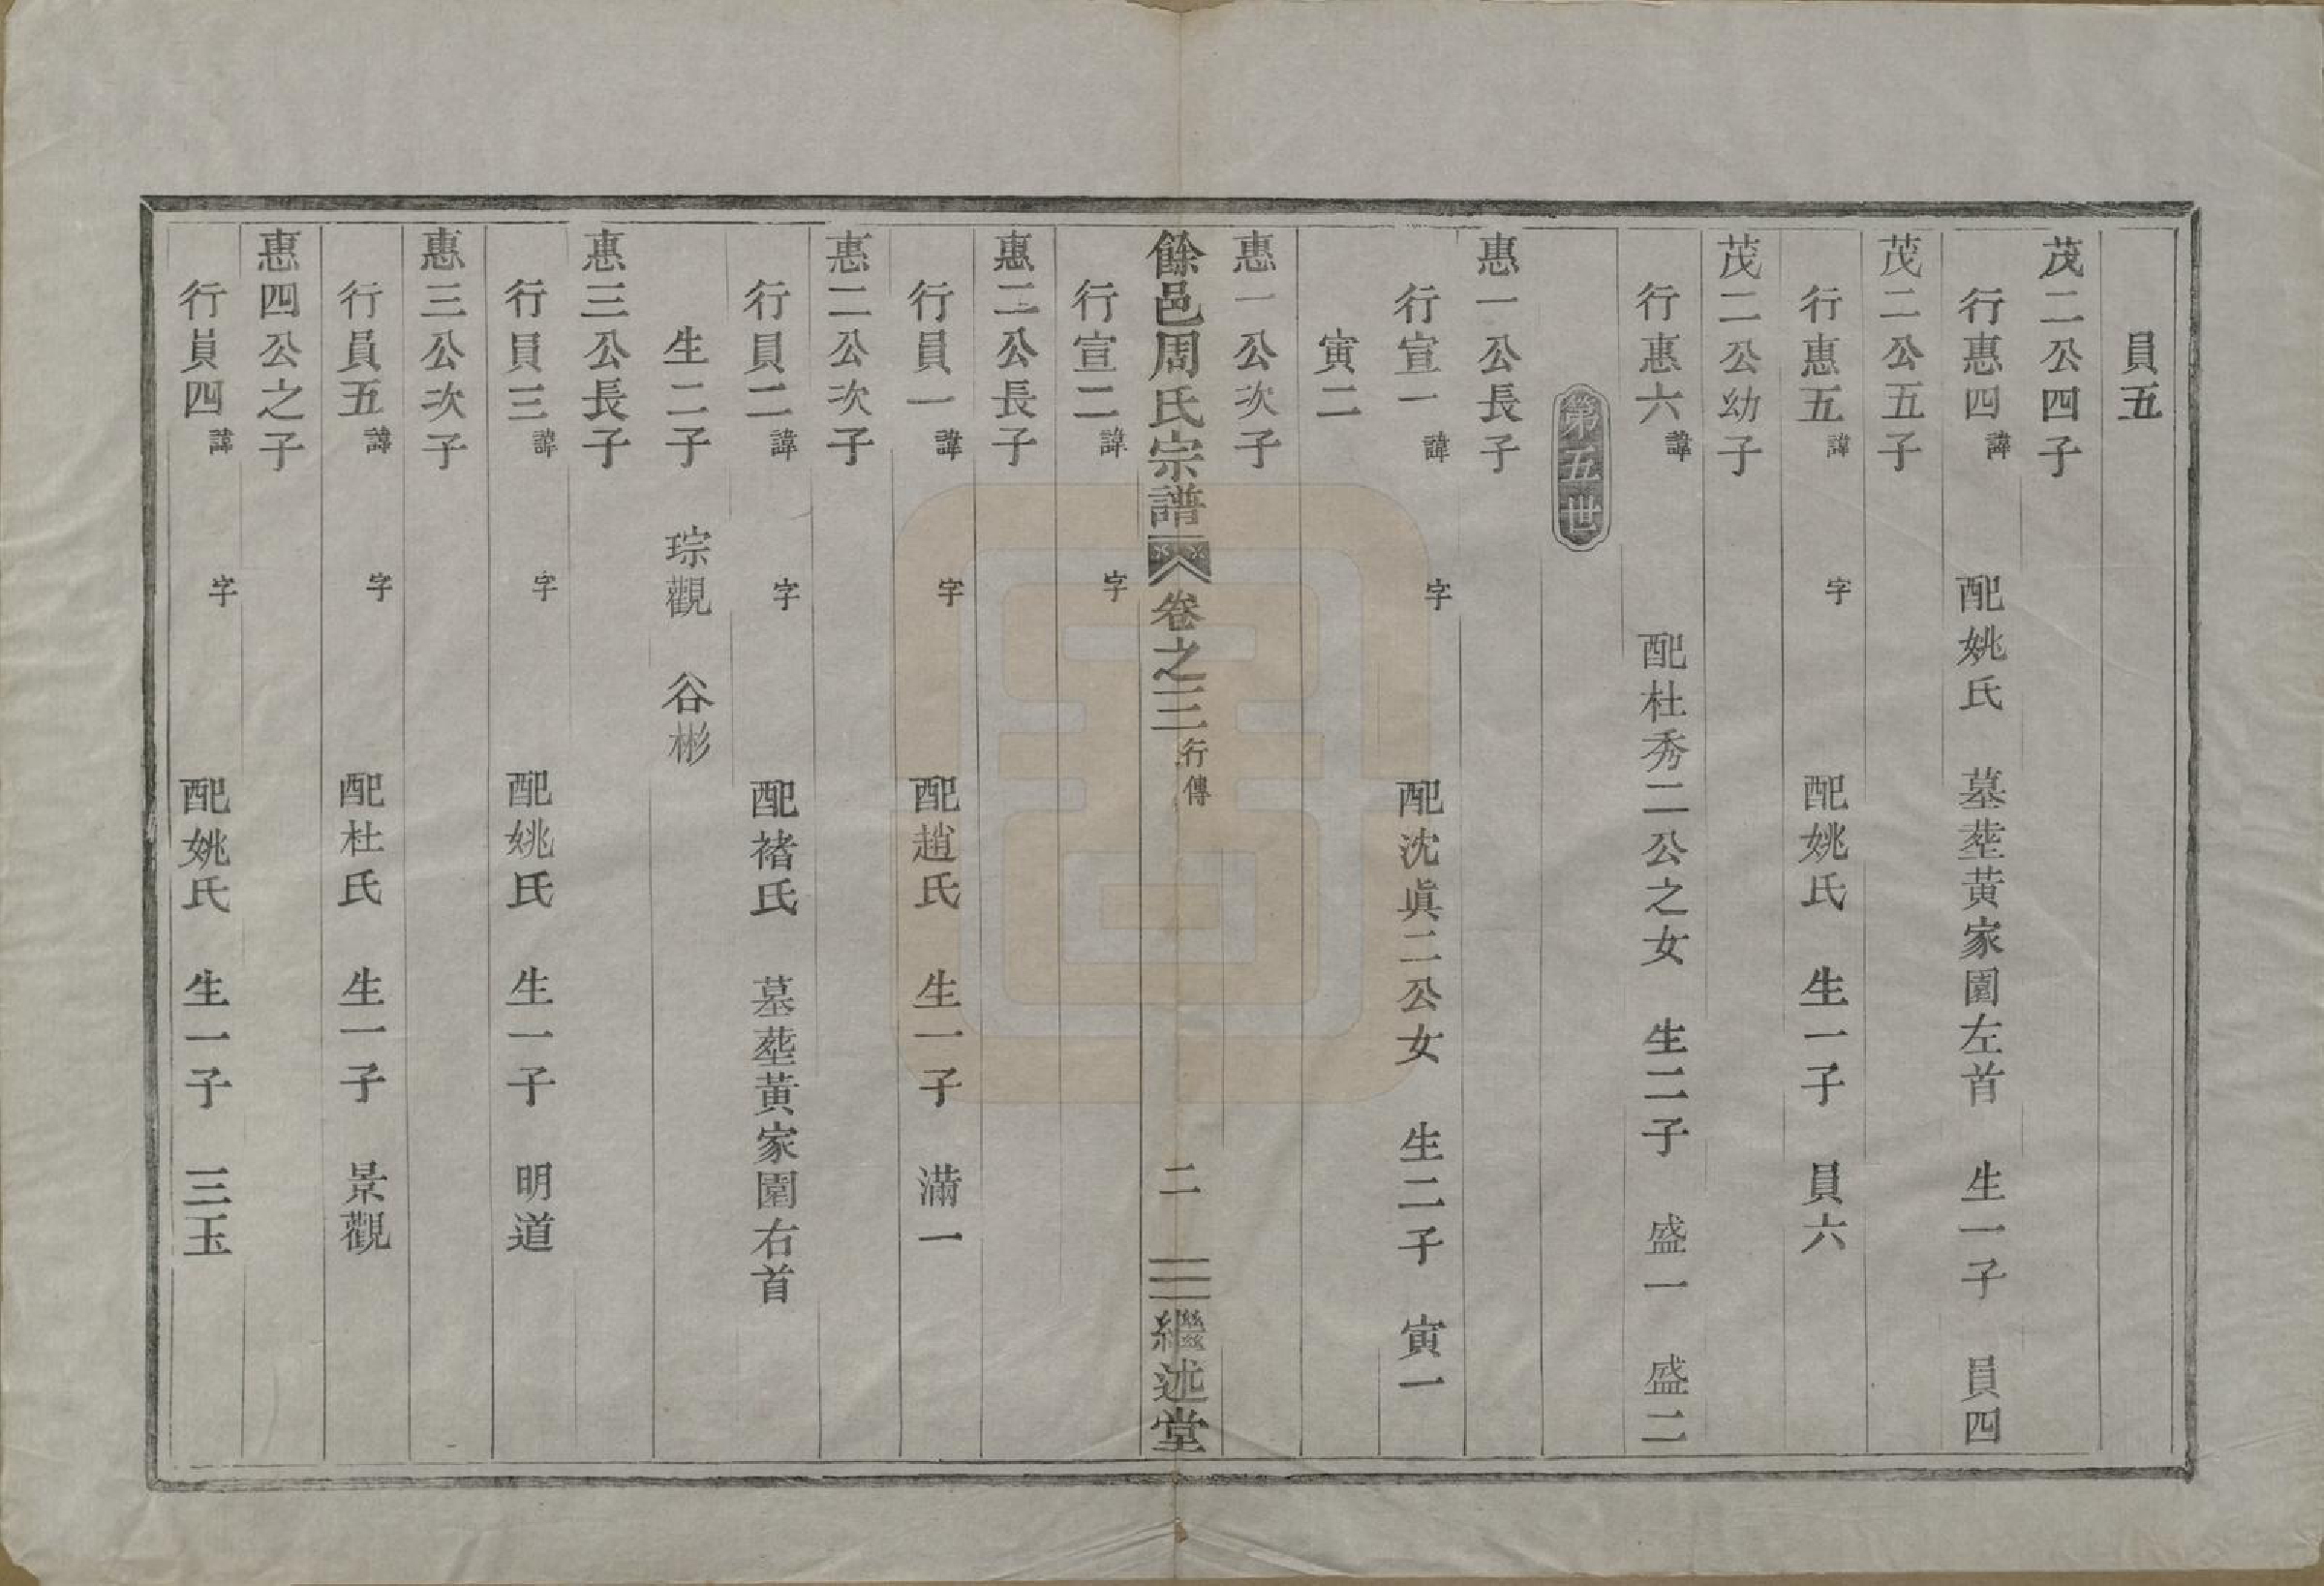 員五
茂二公四子
行惠四諱 配姚氏 墓塟黄家園左首 生一子 員四
茂二公五子
行惠五諱 字 配姚氏 生一子 員六
茂二公幼子
行惠六諱 配杜秀二公之女 生二子 盛一 盛二
第五世
惠一公長子
行宣一諱 字 配沈眞二公女 生二子 寅一
寅二
惠一公次子
餘邑周氏宗譜 卷之三 行傳 二 繼述堂
行宣二諱 字
惠二公長子
行員一諱 字 配趙氏 生一子 滿一
惠二公次子
行員二諱 字 配褚氏 墓塟黃家園右首
生二子 琮觀 谷彬
惠三公長子
行員三諱 字 配姚氏 生一子 明道
惠三公次子
行員五諱 字 配杜氏 生一子 景觀
惠四公之子
行員四諱 字 配姚氏 生一子 三玉